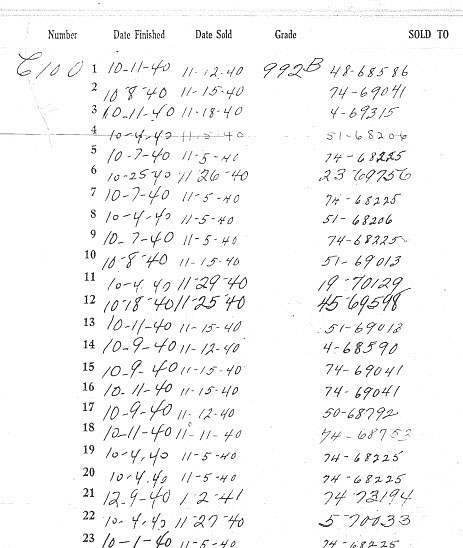 Number Date Finished Date Sold Grade SOLD TO
C100 1 10-11-40 11-12-40 992B 48-68586
2 10 8-40 11-15-40 74-69041
3 10-11-40 11-18-40 4-69315
4 10-4-40 11-5-40 51-68206
5 10-7-40 11-5-40 74-68225
6 10-25-40 11 26-40 23 69756
7 10-7-40 11-5-40 74-68225
8 10-4-40 11-5-40 51-68206
9 10-7-40 11-5-40 74-68225
10 10-8-40 11-15-40 51-69013
11 10-4-40 11 29-40 19-70129
12 10-18-40 11 25-40 45-69598
13 10-11-40 11-15-40 51-69013
14 10-9-40 11-12-40 4-68590
15 10-9-40 11-15-40 74-69041
16 10-11-40 11-15-40 74-69041
17 10-9-40 11-12-40 50-68792
18 10-11-40 11-11-40 74-68753
19 10-4-40 11-5-40 74-68225
20 10-4-40 11-5-40 74-68225
21 12-9-40 1-2-41 74 73194
22 10-4-40 11 27-40 5-70033
23 10-1-40 11-5-40 74-68225